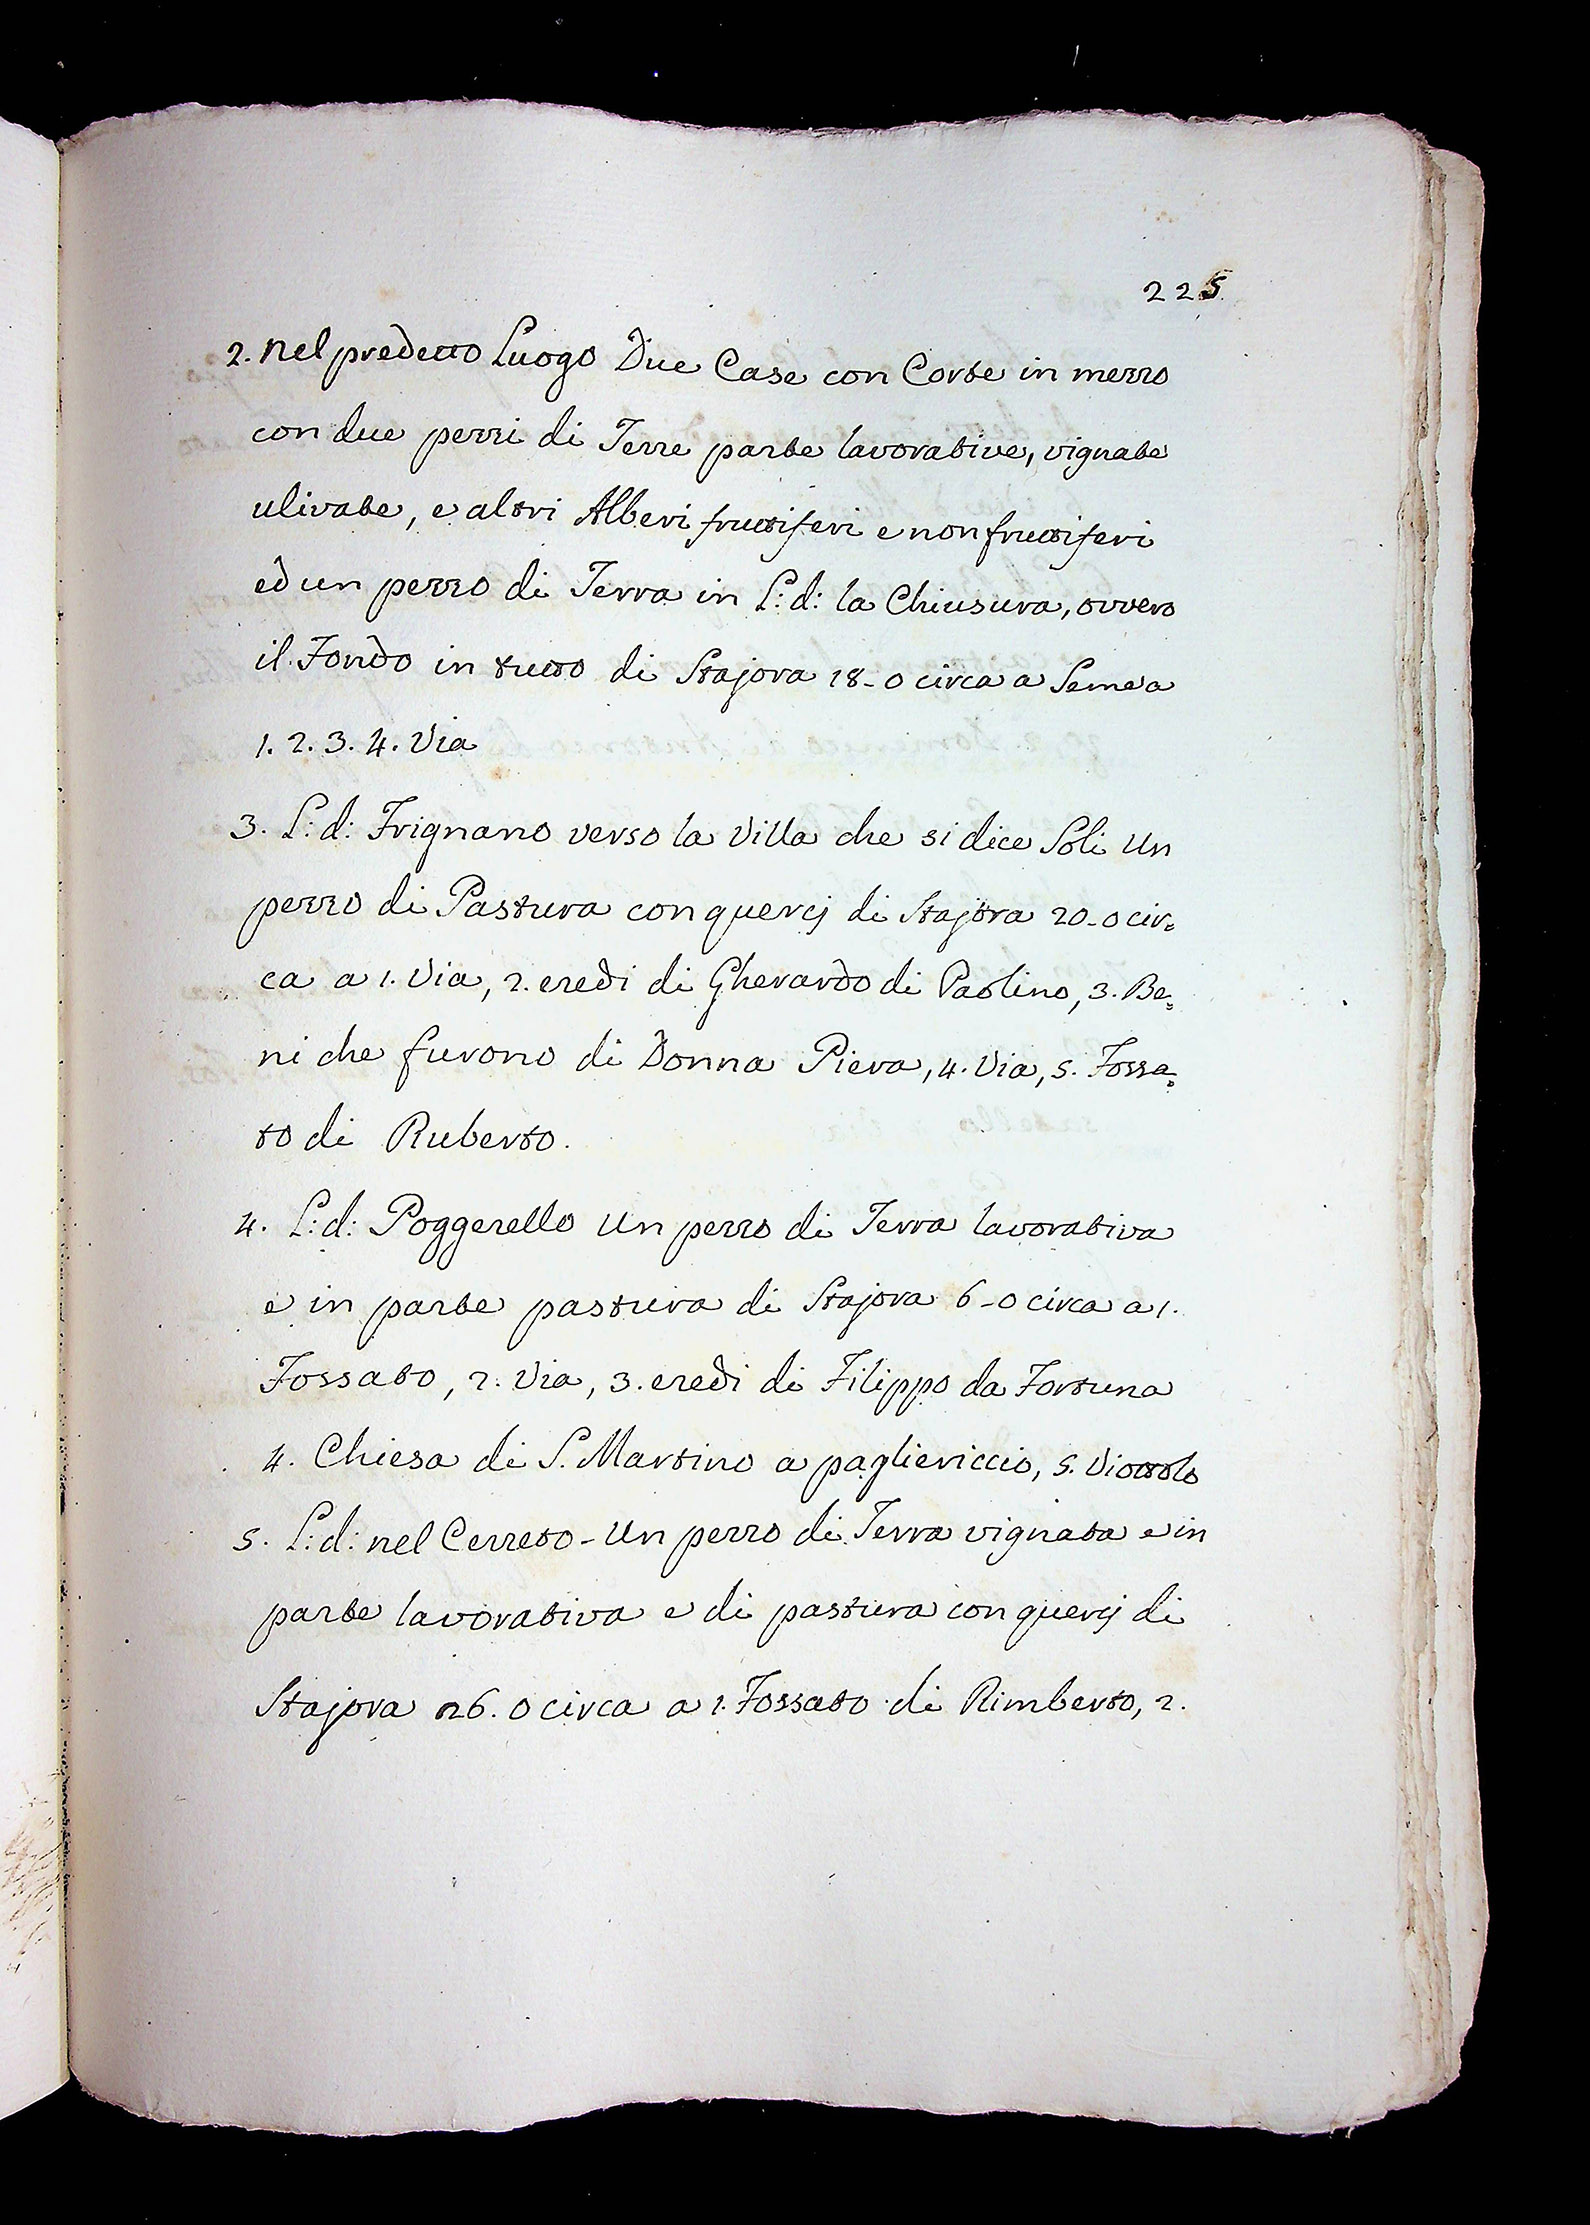 225
2. Nel predetto Luogo Due Case con Corte in mezzo
con due pezzi di Terre parte lavorative, vignate
ulivate, e altri Alberi fruttiferi e non fruttiferi
ed un pezzo di Terra in L: d: la Chiusura, ovvero
il Fondo in tutto di Stajora 18-0 circa a Seme a
1. 2. 3. 4. Via
3. L: d: Frignano verso la Villa che si dice Soli Un
pezzo di Pastura con quercj di Stajora 20-0 cir=
ca a 1. Via, 2. eredi di Gherardo di Paolino, 3. Be=
ni che furono di Donna Piera, 4. Via, 5. Fossa=
to di Ruberto.
4. L: d: Poggerello Un pezzo di Terra lavorativa
e in parte pastura di Stajora 6-0 circa a 1.
Fossato, 2. Via, 3. eredi di Filippo da Fortuna
4. Chiesa di S. Martino a pagliericcio, 5. Viottolo
5. L: d: nel Cerreto - Un pezzo di Terra vignata e in
parte lavorativa e di pastura con quercj di
Stajora 26. 0 circa a 1. Fossato di Rimberto, 2.